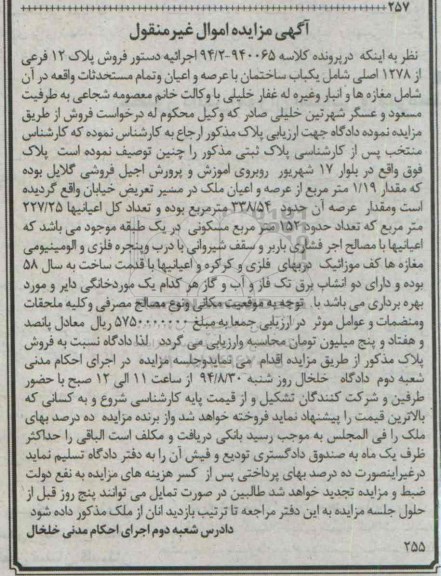 ۲۵۷
آگهی مزایده اموال غیرمنقول
نظر به اینکه درپرونده کلاسه ۹۴۰۰۶۵-۹۴/۲ اجرائیه دستور فروش پلاک ۱۲ فرعی
از ۱۲۷۸ اصلی شامل یکباب ساختمان با عرصه و اعیان وتمام مستحدثات واقعه در آن
شامل مغازه ها و انبار وغیره له غفار خلیلی با وکالت خانم معصومه شجاعی به طرفیت
مسعود و عسگر شهرتین خلیلی صادر که وکیل محکوم له درخواست فروش از طریق
مزایده نموده دادگاه جهت ارزیابی پلاک مذکور ارجاع به کارشناس نموده که کارشناس
منتخب پس از کارشناسی پلاک ثبتی مذکور را چنین توصیف نموده است پلاک
فوق واقع در بلوار ۱۷ شهریور روبروی اموزش و پرورش اجیل فروشی گلایل بوده
که مقدار ۱/۱۹ متر مربع از عرصه و اعیان ملک در مسیر تعریض خیابان واقع گردیده
است ومقدار عرصه آن حدود ۳۳۸/۵۴ مترمربع بوده و تعداد کل اعیانیها ۲۲۷/۲۵
متر مربع که تعداد حدود ۱۵۲ متر مربع مسکونی در یک طبقه موجود می باشد که
اعیانیها با مصالح اجر فشاری باربر و سقف شیروانی با درب وپنجره فلزی و الومینیومی
مغازه ها کف موزائیک دربهای فلزی و کرکره و اعیانیها با قدمت ساخت به سال ۵۸
بوده و دارای دو انشاب برق تک فاز و آب و گاز هر کدام یک موردخانگی دایر و مورد
بهره برداری می باشد با توجه به موقعیت مکانی ونوع مصالح مصرفی وکلیه ملحقات
ومنضمات و عوامل موثر در ارزیابی جمعا به مبلغ ۵۷۵۰۰۰۰۰۰۰ ریال معادل پانصد
و هفتاد و پنج میلیون تومان محاسبه وارزیابی می گردد لذا دادگاه نسبت به فروش
پلاک مذکور از طریق مزایده اقدام می نمایدوجلسه مزایده در اجرای احکام مدنی
شعبه دوم دادگاه خلخال روز شنبه ۹۴/۸/۳۰ از ساعت ۱۱ الی ۱۲ صبح با حضور
طرفین و شرکت کنندگان تشکیل و از قیمت پایه کارشناسی شروع و به کسانی که
بالاترین قیمت را پیشنهاد نماید فروخته خواهد شد واز برنده مزایده ده درصد بهای
ملک را فی المجلس به موجب رسید بانکی دریافت و مکلف است الباقی را حداکثر
ظرف یک ماه به صندوق دادگستری تودیع و فیش آن را به دفتر دادگاه تسلیم نماید
درغیراینصورت ده درصد بهای پرداختی پس از کسر هزینه های مزایده به نفع دولت
ضبط و مزایده تجدید خواهد شد طالبین در صورت تمایل می توانند پنج روز قبل از
حلول جلسه مزایده به این دفتر مراجعه تا ترتیب بازدید انان از ملک مذکور داده شود
دادرس شعبه دوم اجرای احکام مدنی خلخال
۲۵۵